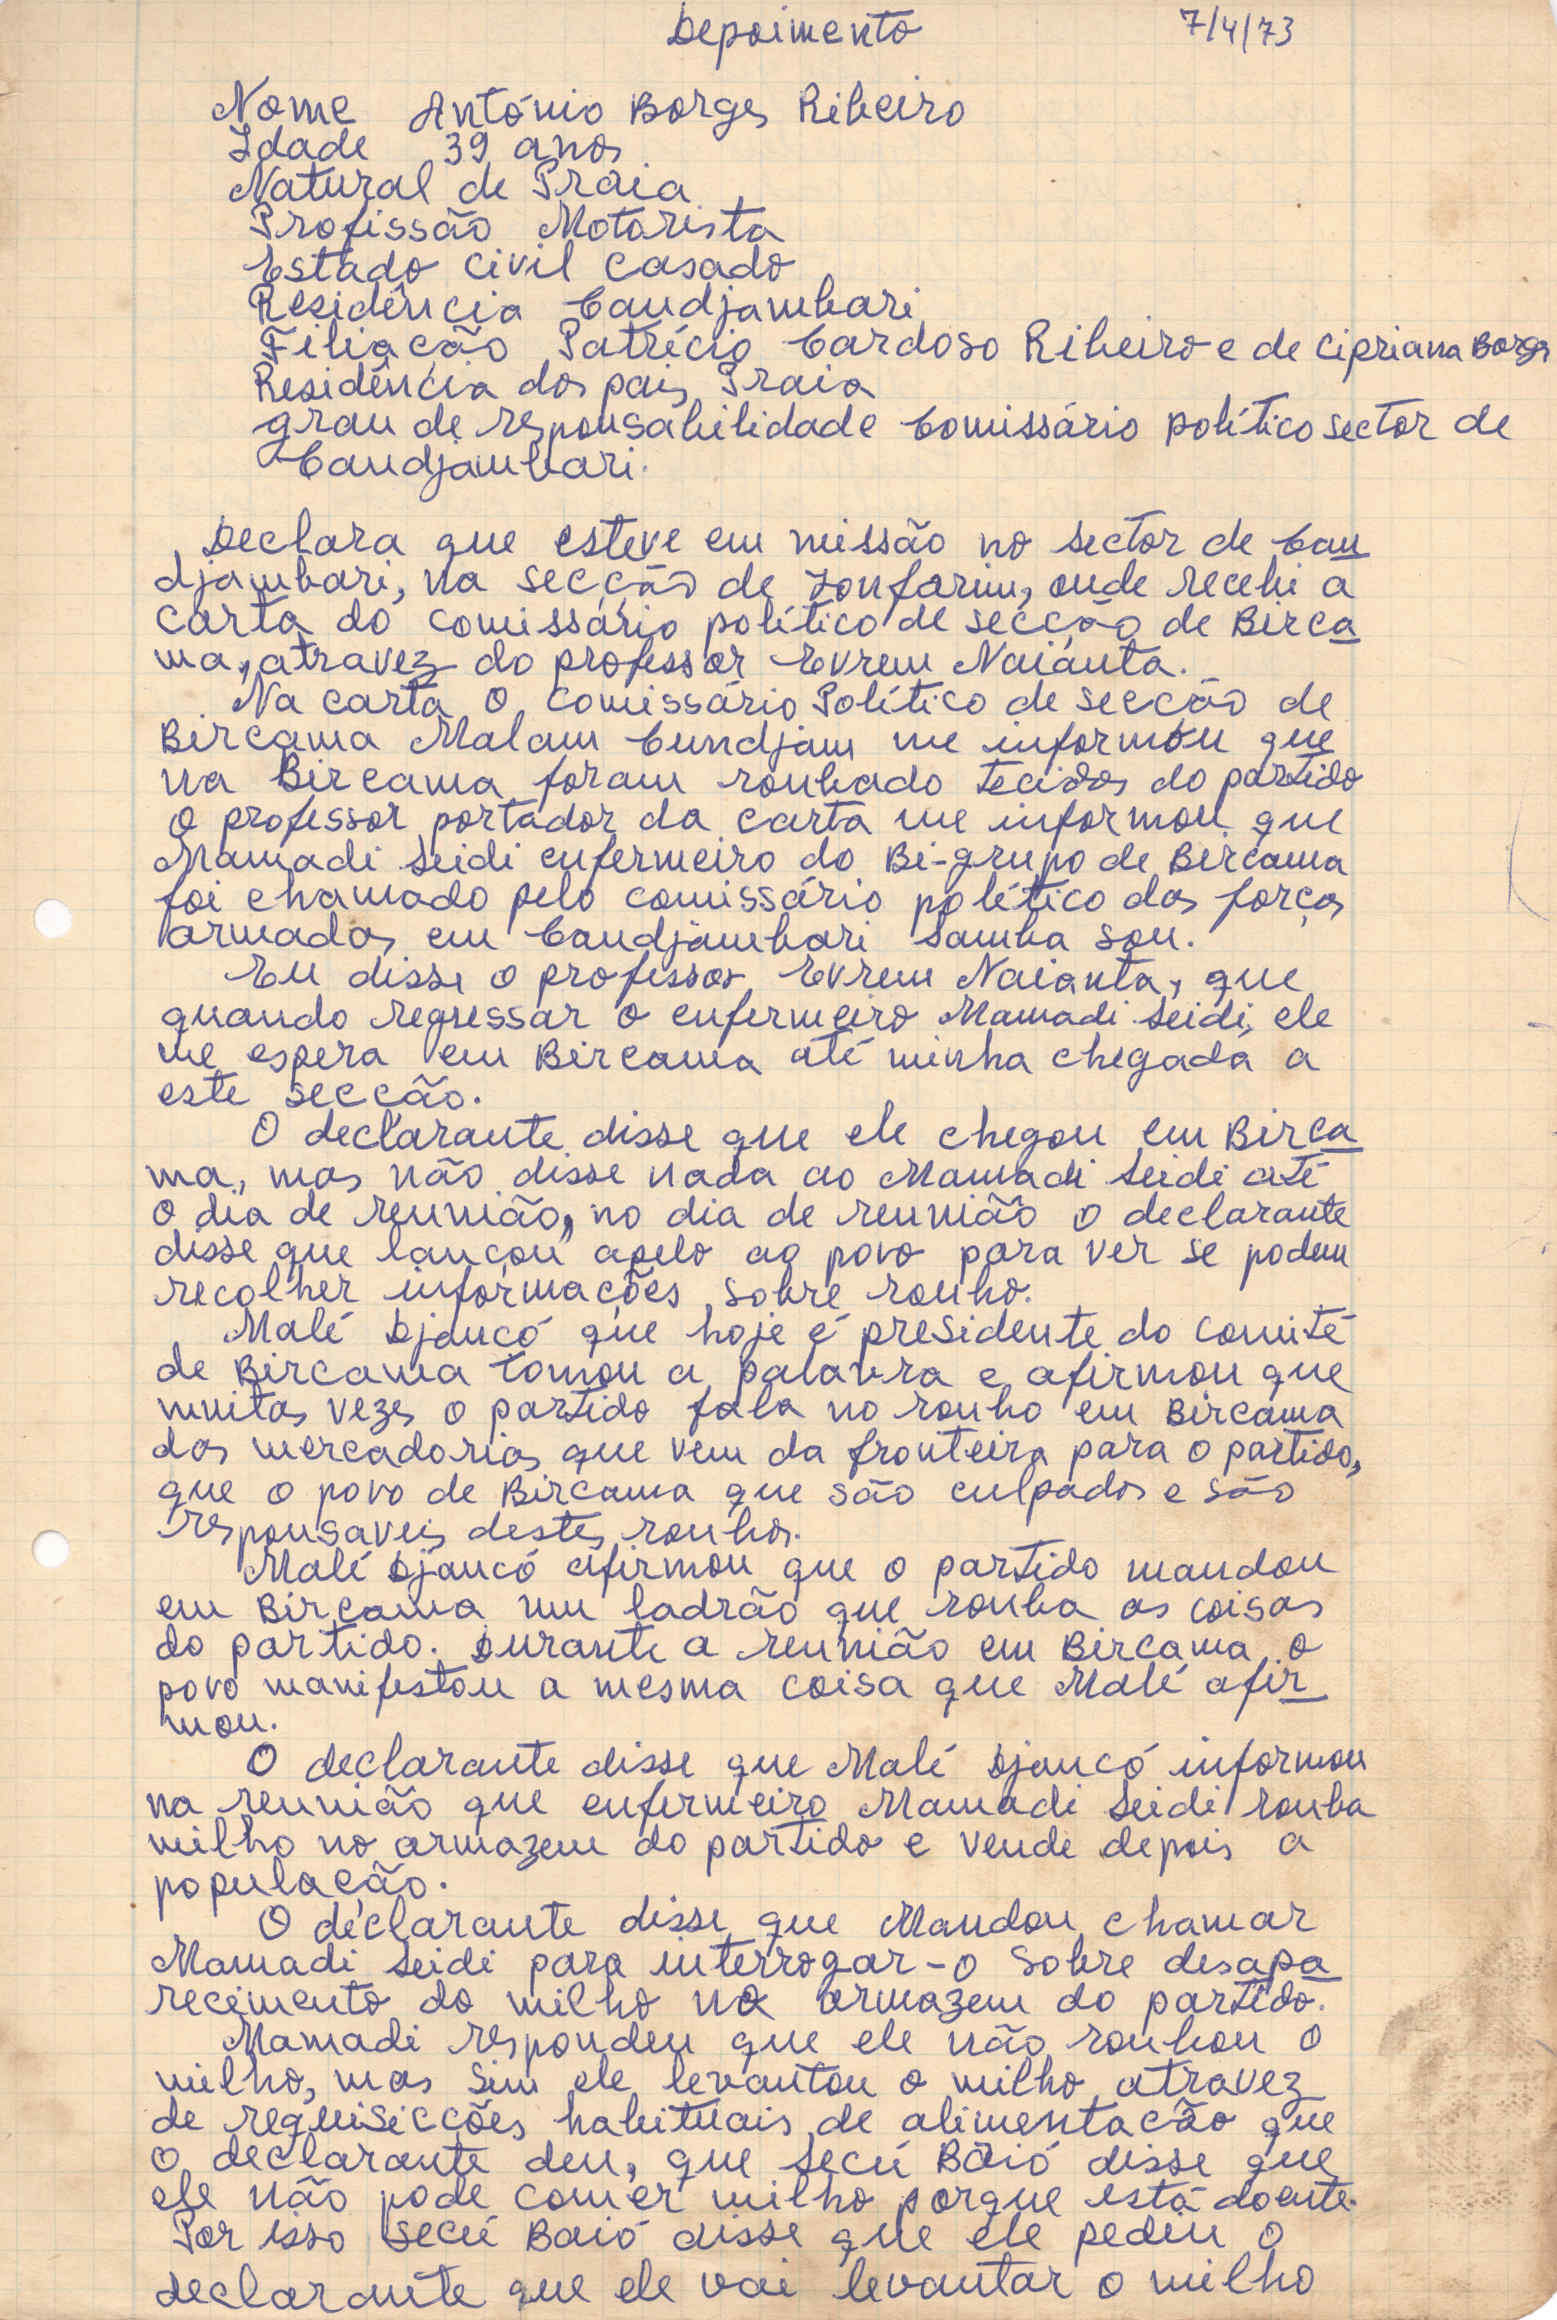 Depoimento 7/4/73
Nome António Borges Ribeiro
Idade 39 anos
Natural de Praia
Profissão Motorista
Estado civil casado
Residência Candjambari
Filiação Patrício Cardoso Ribeiro e de Cipriana Borges
Residência dos pais Praia
grau de responsabilidade Comissário político sector de
Candjambari.
Declara que esteve em missão no sector de Can
djambari, na secção de Jonfarim, onde recebi a
carta do comissário político de secção de Birca
ma, atravez do professor Evrem Naiánta.
Na carta o comissário Político de secção de
Bircama Malam Cundjam me informou que
na Bircama foram roubado tecidos do partido
O professor portador da carta me informou que
Mamadi Seidi enfermeiro do Bi-grupo de Bircama
foi chamado pelo comissário político das forças
armadas em Candjambari Samba Sou.
Eu disse o professor Evrem Naianta, que
quando regressar o enfermeiro Mamadi Seidi, ele
me espera em Bircama até minha chegada a
este secção.
O declarante disse que ele chegou em Birca
ma, mas não disse nada ao Mamadi Seidi até
o dia de reunião, no dia de reunião o declarante
disse que lançou apelo ao povo para ver se podem
recolher informações sobre roubo.
Malé Djancó que hoje é presidente do comité
de Bircama tomou a palavra e afirmou que
muitas vezes o partido fala no roubo em Bircama
das mercadorias que vem da fronteira para o partido,
que o povo de Bircama que são culpados e são
responsaveis destes roubos.
Malé Djancó afirmou que o partido mandou
em Bircama um ladrão que rouba as coisas
do partido. Durante a reunião em Bircama o
povo manifestou a mesma coisa que Malé afir
mou.
O declarante disse que Malé Djancó informou
na reunião que enfermeiro Mamadi Seidi rouba
milho no armazem do partido e vende depois a
população.
O declarante disse que Mandou chamar
Mamadi Seidi para interrogar-o sobre desapa
recimento do milho no armazem do partido.
Mamadi respondeu que ele não roubou o
milho, mas sim ele levantou o milho atravez
de requisicções habituais de alimentacão que
o declarante deu, que Secú Baió disse que
ele não pode comer milho porque está doente.
Por isso Secú Baió disse que ele pediu o
declarante que ele vai levantar o milho